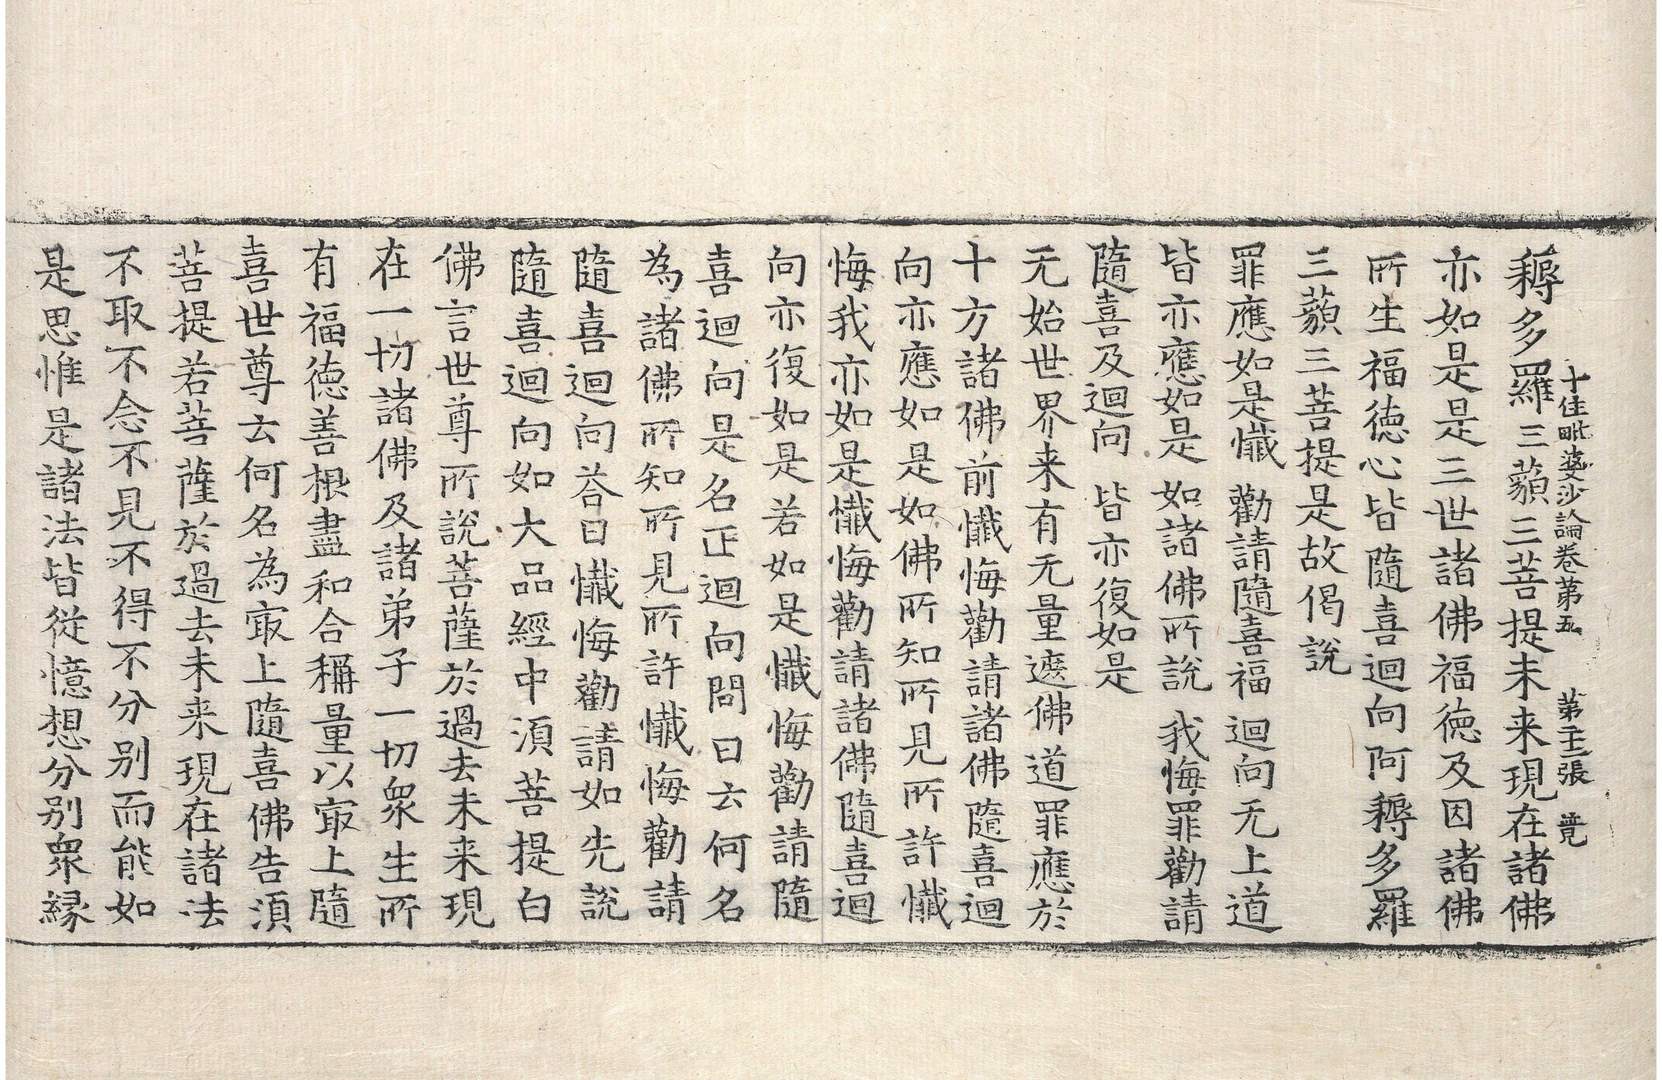 十住毗婆沙論卷第五 張 竟
耨多羅三藐三菩提未来現在諸佛
亦如是是三世諸佛福德及因諸佛
所生福德心皆隨喜迴向阿耨多羅
三藐三菩提是故偈說
罪應如是懺 勸請隨喜福 迴向无上道
皆亦應如是 如諸佛所說 我悔罪勸請
隨喜及迴向 皆亦復如是
无始世界来有无量遮佛道罪應於
十方諸佛前懺悔勸請諸佛隨喜迴
向亦應如是如佛所知所見所許懺
悔我亦如是懺悔勸請諸佛隨喜迴
向亦復如是若如是懺悔勸請隨
喜迴向是名正迴向問曰云何名
為諸佛所知所見所許懺悔勸請
隨喜迴向荅曰懺悔勸請如先說
隨喜迴向如大品經中須菩提白
佛言世尊所說菩薩於過去未来現
在一切諸佛及諸弟子一切衆生所
有福德善根盡和合稱量以㝡上隨
喜世尊云何名為㝡上隨喜佛告須
菩提若菩薩於過去未来現在諸法
不取不念不見不得不分別而能如
是思惟是諸法皆從憶想分別衆緣